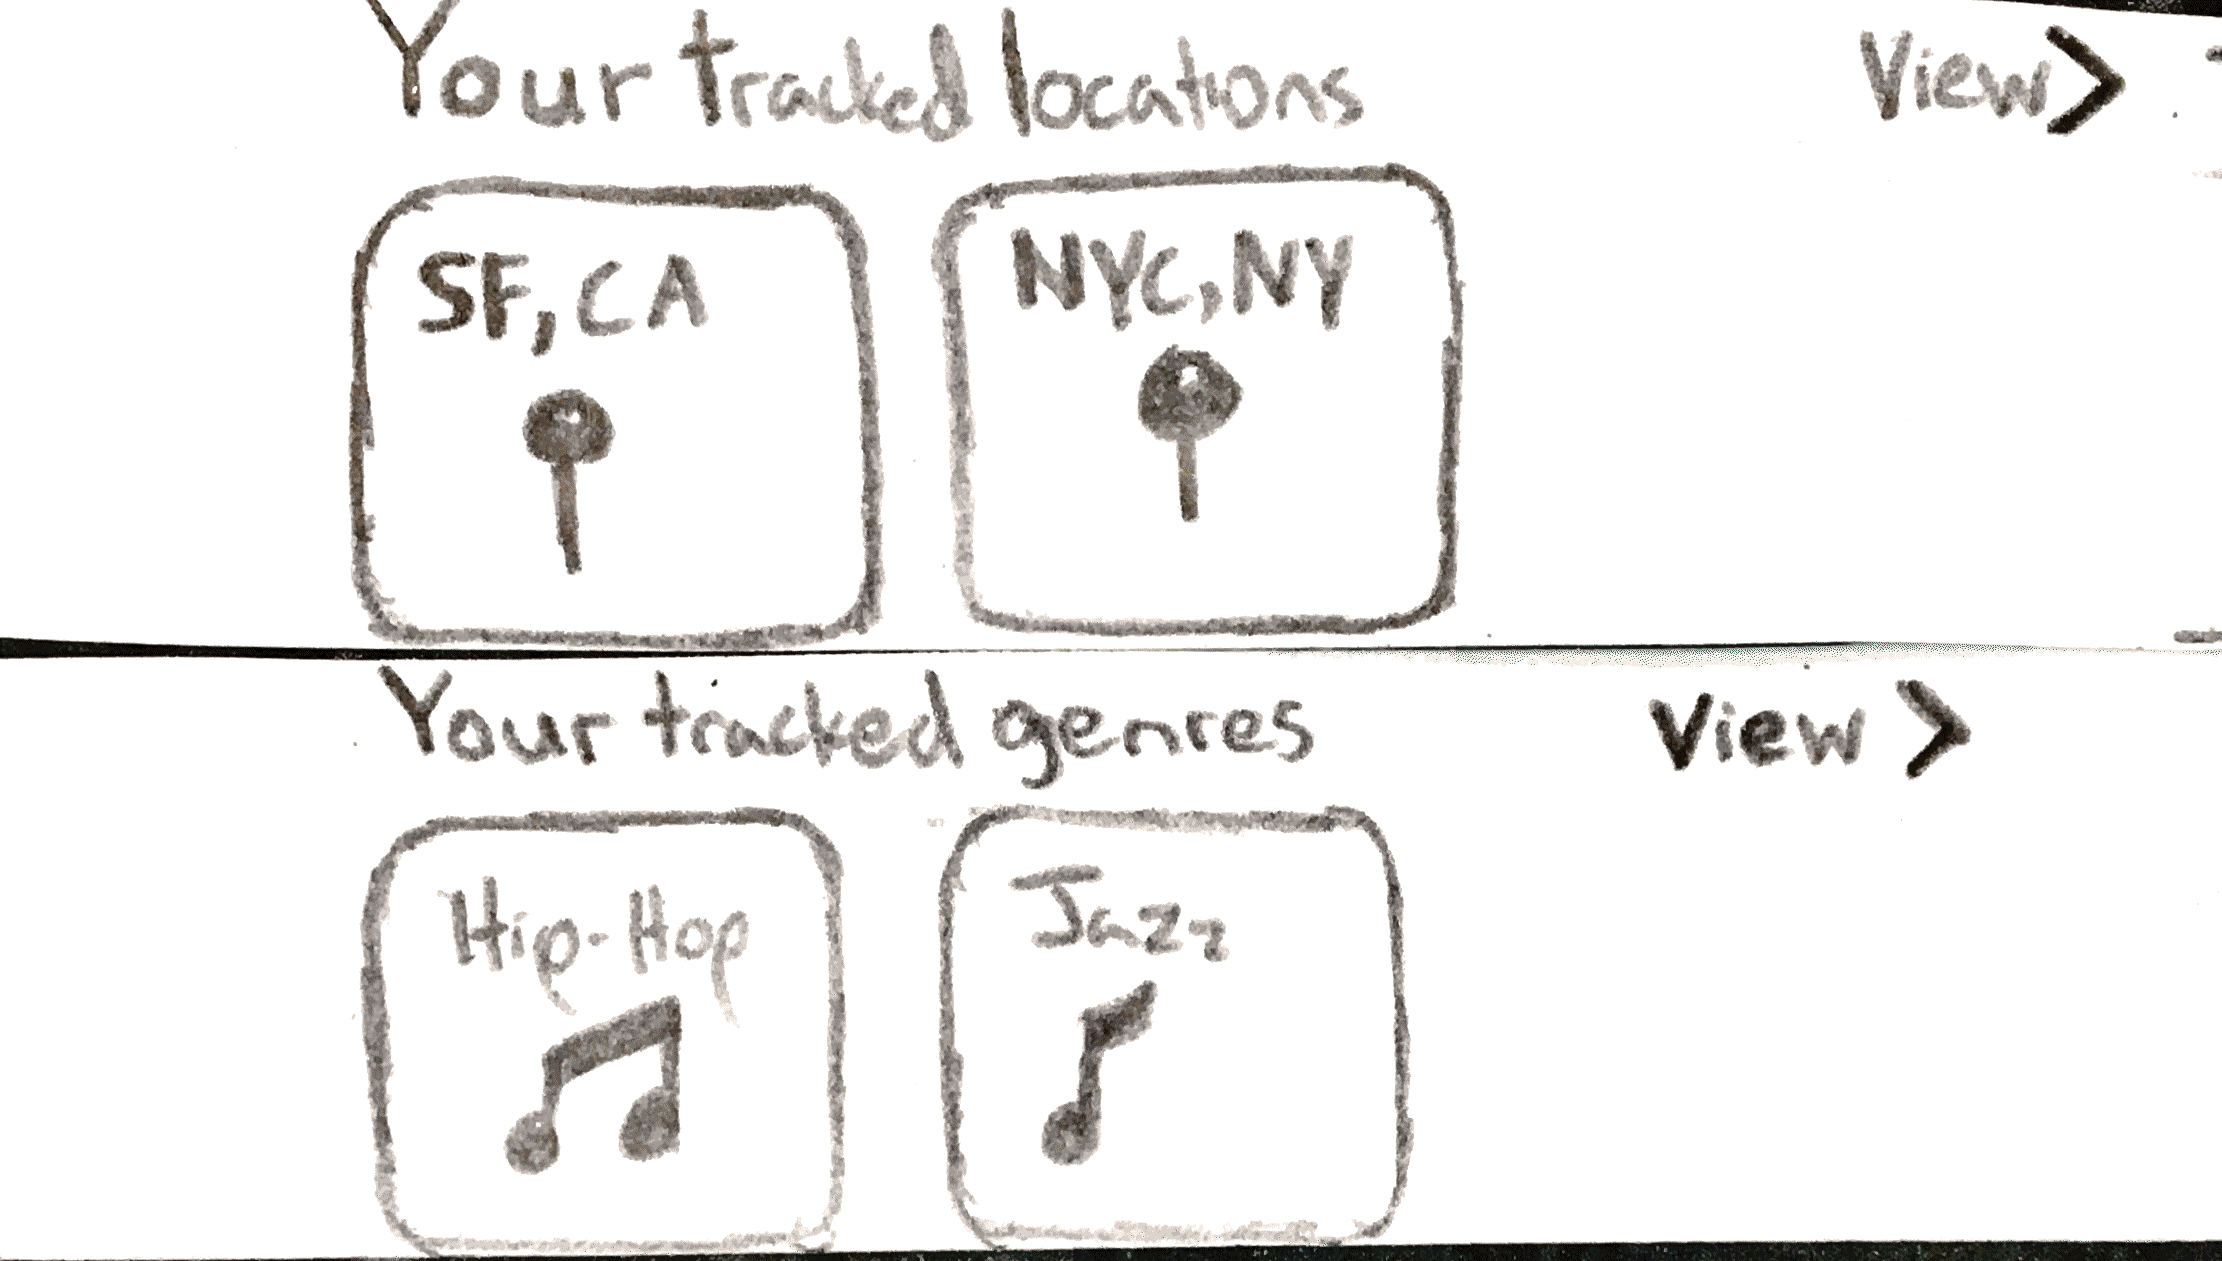 Your tracked locations View >
SF, CA NYC, NY
Your tracked genres View >
Hip-Hop Jazz